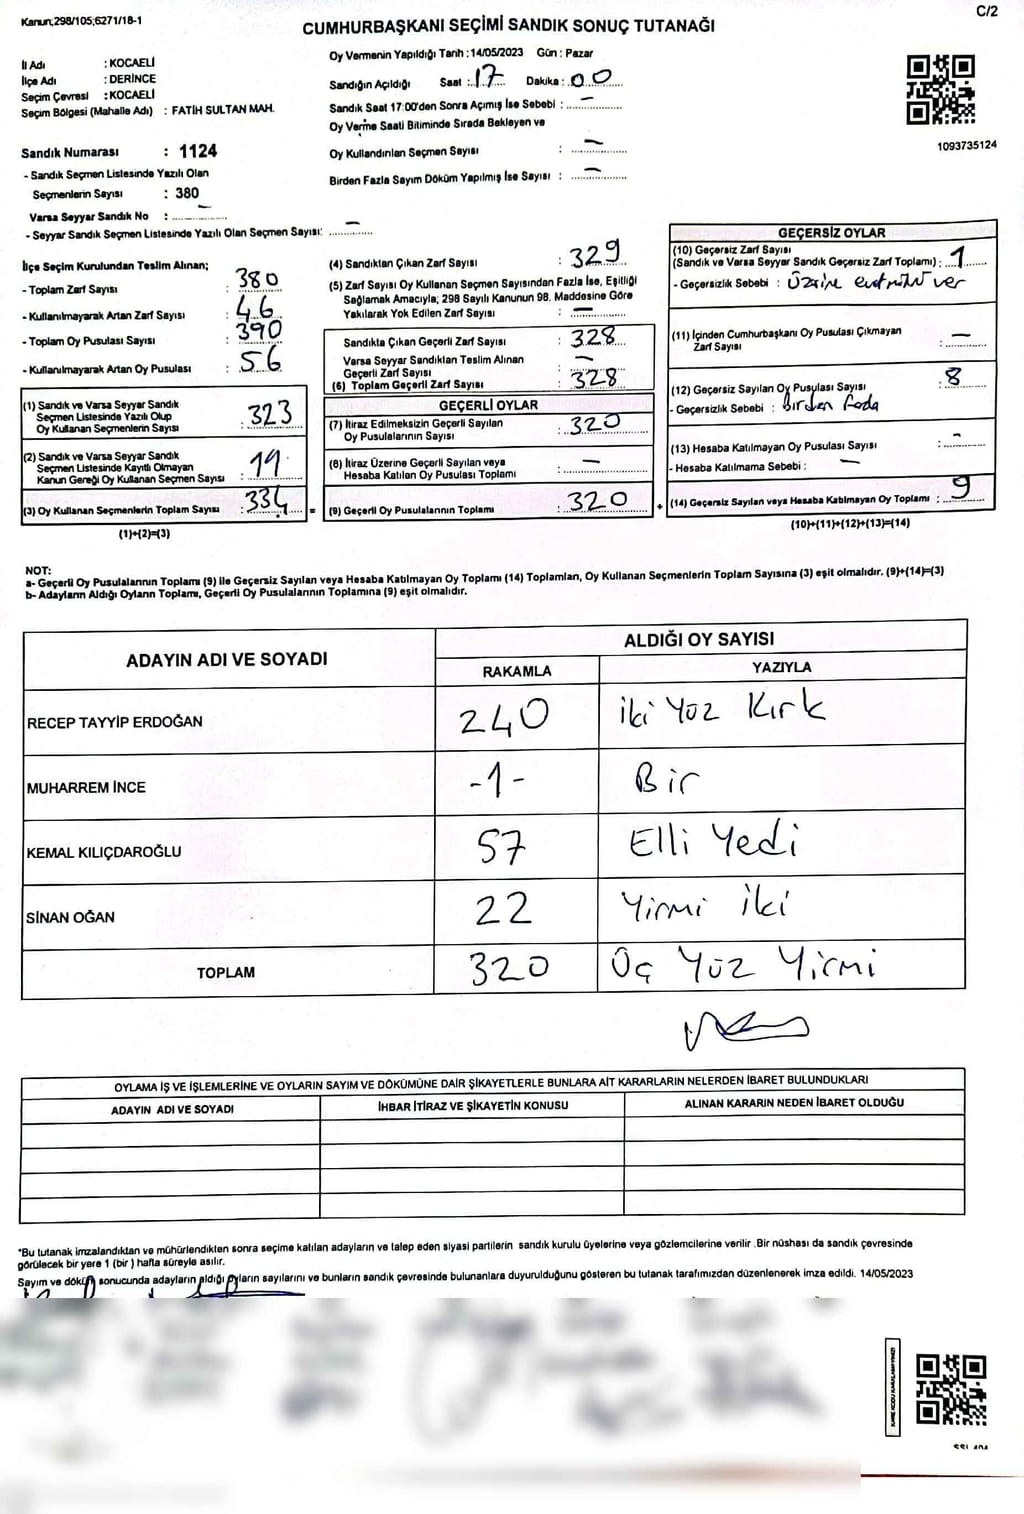 Kanun;298/105;6271/18-1
C/2
CUMHURBAŞKANI SEÇİMİ SANDIK SONUÇ TUTANAĞI
İl Adı : KOCAELİ
İlçe Adı : DERİNCE
Seçim Çevresi : KOCAELİ
Seçim Bölgesi (Mahalle Adı) : FATİH SULTAN MAH.
Sandık Numarası : 1124
- Sandık Seçmen Listesinde Yazılı Olan
Seçmenlerin Sayısı : 380
Varsa Seyyar Sandık No : –
- Seyyar Sandık Seçmen Listesinde Yazılı Olan Seçmen Sayısı: –
Oy Vermenin Yapıldığı Tarih : 14/05/2023 Gün : Pazar
Sandığın Açıldığı Saat : 17 Dakika : 00
Sandık Saat 17:00'den Sonra Açımış İse Sebebi : –
Oy Verme Saati Bitiminde Sırada Bekleyen ve
Oy Kullandırılan Seçmen Sayısı : –
Birden Fazla Sayım Döküm Yapılmış İse Sayısı : –
1093735124
İlçe Seçim Kurulundan Teslim Alınan;
- Toplam Zarf Sayısı : 380
- Kullanılmayarak Artan Zarf Sayısı : 46
- Toplam Oy Pusulası Sayısı : 390
- Kullanılmayarak Artan Oy Pusulası : 56
(1) Sandık ve Varsa Seyyar Sandık
Seçmen Listesinde Yazılı Olup
Oy Kullanan Seçmenlerin Sayısı : 323
(2) Sandık ve Varsa Seyyar Sandık
Seçmen Listesinde Kayıtlı Olmayan
Kanun Gereği Oy Kullanan Seçmen Sayısı : 11
(3) Oy Kullanan Seçmenlerin Toplam Sayısı : 334 =
(1)+(2)=(3)
(4) Sandıktan Çıkan Zarf Sayısı : 329
(5) Zarf Sayısı Oy Kullanan Seçmen Sayısından Fazla İse, Eşitliği
Sağlamak Amacıyla; 298 Sayılı Kanunun 98. Maddesine Göre
Yakılarak Yok Edilen Zarf Sayısı : –
Sandıkta Çıkan Geçerli Zarf Sayısı : 328
Varsa Seyyar Sandıktan Teslim Alınan
Geçerli Zarf Sayısı : –
(6) Toplam Geçerli Zarf Sayısı : 328
GEÇERLİ OYLAR
(7) İtiraz Edilmeksizin Geçerli Sayılan
Oy Pusulalarının Sayısı : 320
(8) İtiraz Üzerine Geçerli Sayılan veya
Hesaba Katılan Oy Pusulası Toplamı : –
(9) Geçerli Oy Pusulalarının Toplamı : 320 +
GEÇERSİZ OYLAR
(10) Geçersiz Zarf Sayısı
(Sandık ve Varsa Seyyar Sandık Geçersiz Zarf Toplamı) : 1
- Geçersizlik Sebebi : Üzerine evet mührü ver
(11) İçinden Cumhurbaşkanı Oy Pusulası Çıkmayan
Zarf Sayısı : –
(12) Geçersiz Sayılan Oy Pusulası Sayısı : 8
- Geçersizlik Sebebi : Birden fazla
(13) Hesaba Katılmayan Oy Pusulası Sayısı : –
- Hesaba Katılmama Sebebi : –
(14) Geçersiz Sayılan veya Hesaba Katılmayan Oy Toplamı : 9
(10)+(11)+(12)+(13)=(14)
NOT:
a- Geçerli Oy Pusulalarının Toplamı (9) ile Geçersiz Sayılan veya Hesaba Katılmayan Oy Toplamı (14) Toplamları, Oy Kullanan Seçmenlerin Toplam Sayısına (3) eşit olmalıdır. (9)+(14)=(3)
b- Adayların Aldığı Oyların Toplamı, Geçerli Oy Pusulalarının Toplamına (9) eşit olmalıdır.
ADAYIN ADI VE SOYADI
ALDIĞI OY SAYISI
RAKAMLA YAZIYLA
RECEP TAYYİP ERDOĞAN 240 İki Yüz Kırk
MUHARREM İNCE -1- Bir
KEMAL KILIÇDAROĞLU 57 Elli Yedi
SİNAN OĞAN 22 Yirmi İki
TOPLAM 320 Üç Yüz Yirmi
OYLAMA İŞ VE İŞLEMLERİNE VE OYLARIN SAYIM VE DÖKÜMÜNE DAİR ŞİKAYETLERLE BUNLARA AİT KARARLARIN NELERDEN İBARET BULUNDUKLARI
ADAYIN ADI VE SOYADI İHBAR İTİRAZ VE ŞİKAYETİN KONUSU ALINAN KARARIN NEDEN İBARET OLDUĞU
*Bu tutanak imzalandıktan ve mühürlendikten sonra seçime katılan adayların ve talep eden siyasi partilerin sandık kurulu üyelerine veya gözlemcilerine verilir .Bir nüshası da sandık çevresinde
görülecek bir yere 1 (bir ) hafta süreyle asılır.
Sayım ve döküm sonucunda adayların aldığı oyların sayılarını ve bunların sandık çevresinde bulunanlara duyurulduğunu gösteren bu tutanak tarafımızdan düzenlenerek imza edildi. 14/05/2023